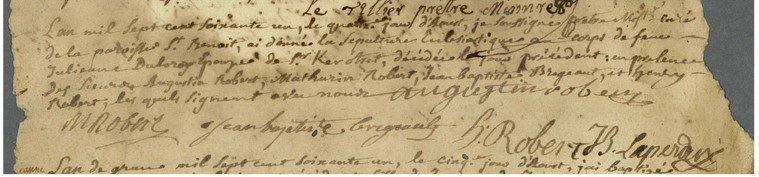 Le Tellier prestre Missre
L'an mil Sept cent Soixante un, le quatre jour d'Aoust, je Soussigné prêtre curé
de la paroisse St Benoit, ai donné la Sepulture Eclesiastique au corps de feue
Julienne épouse de Sr décédée le jour précédent; en presence
Des Sieurs Augustin Robert, Mathurin Robert, Jean Baptiste et henry
Robert; les quels signent avec nous augustin robert
MRobert jean baptiste h: Robert JB Laperdrix
L'an de grace mil Sept cent Soixante un, le cinq jour d'Aoust, j'ai baptisé